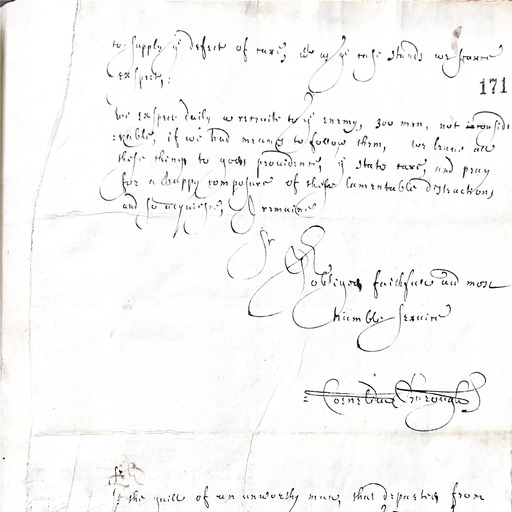 to supply yͤ defect of care, wͨͪ as yͤ case stands we scarce
171
expect:
We expect daily a recruite to yͤ enemy, 300 men, not inconside
=rable, if we had means to follow them, we leave all
these things to gods providence, yͤ state care, and pray
for a happy composure of these lamentable distractions
and so acquiesce, I remaine
Sr
Yoͬ obliged faithfull and most
humble servite
Cornelius Burough
Sr
If the guilt of an unworthy man, that departed from